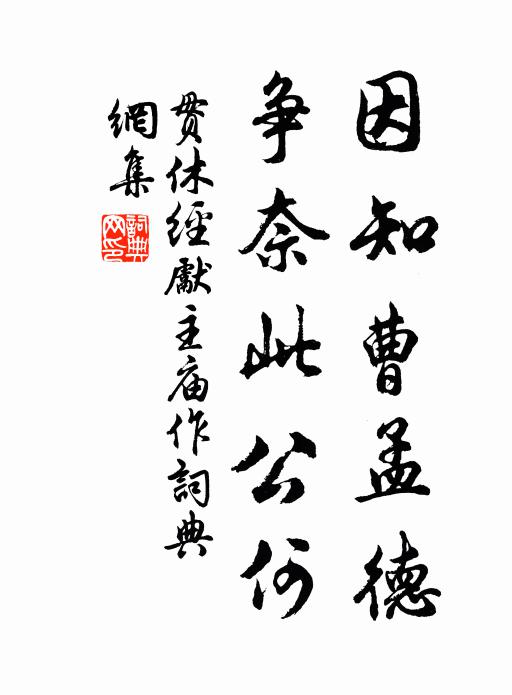 因知曹孟德
争奈此公何
贯休經獻主庙作詞典
網集
詞典
网印